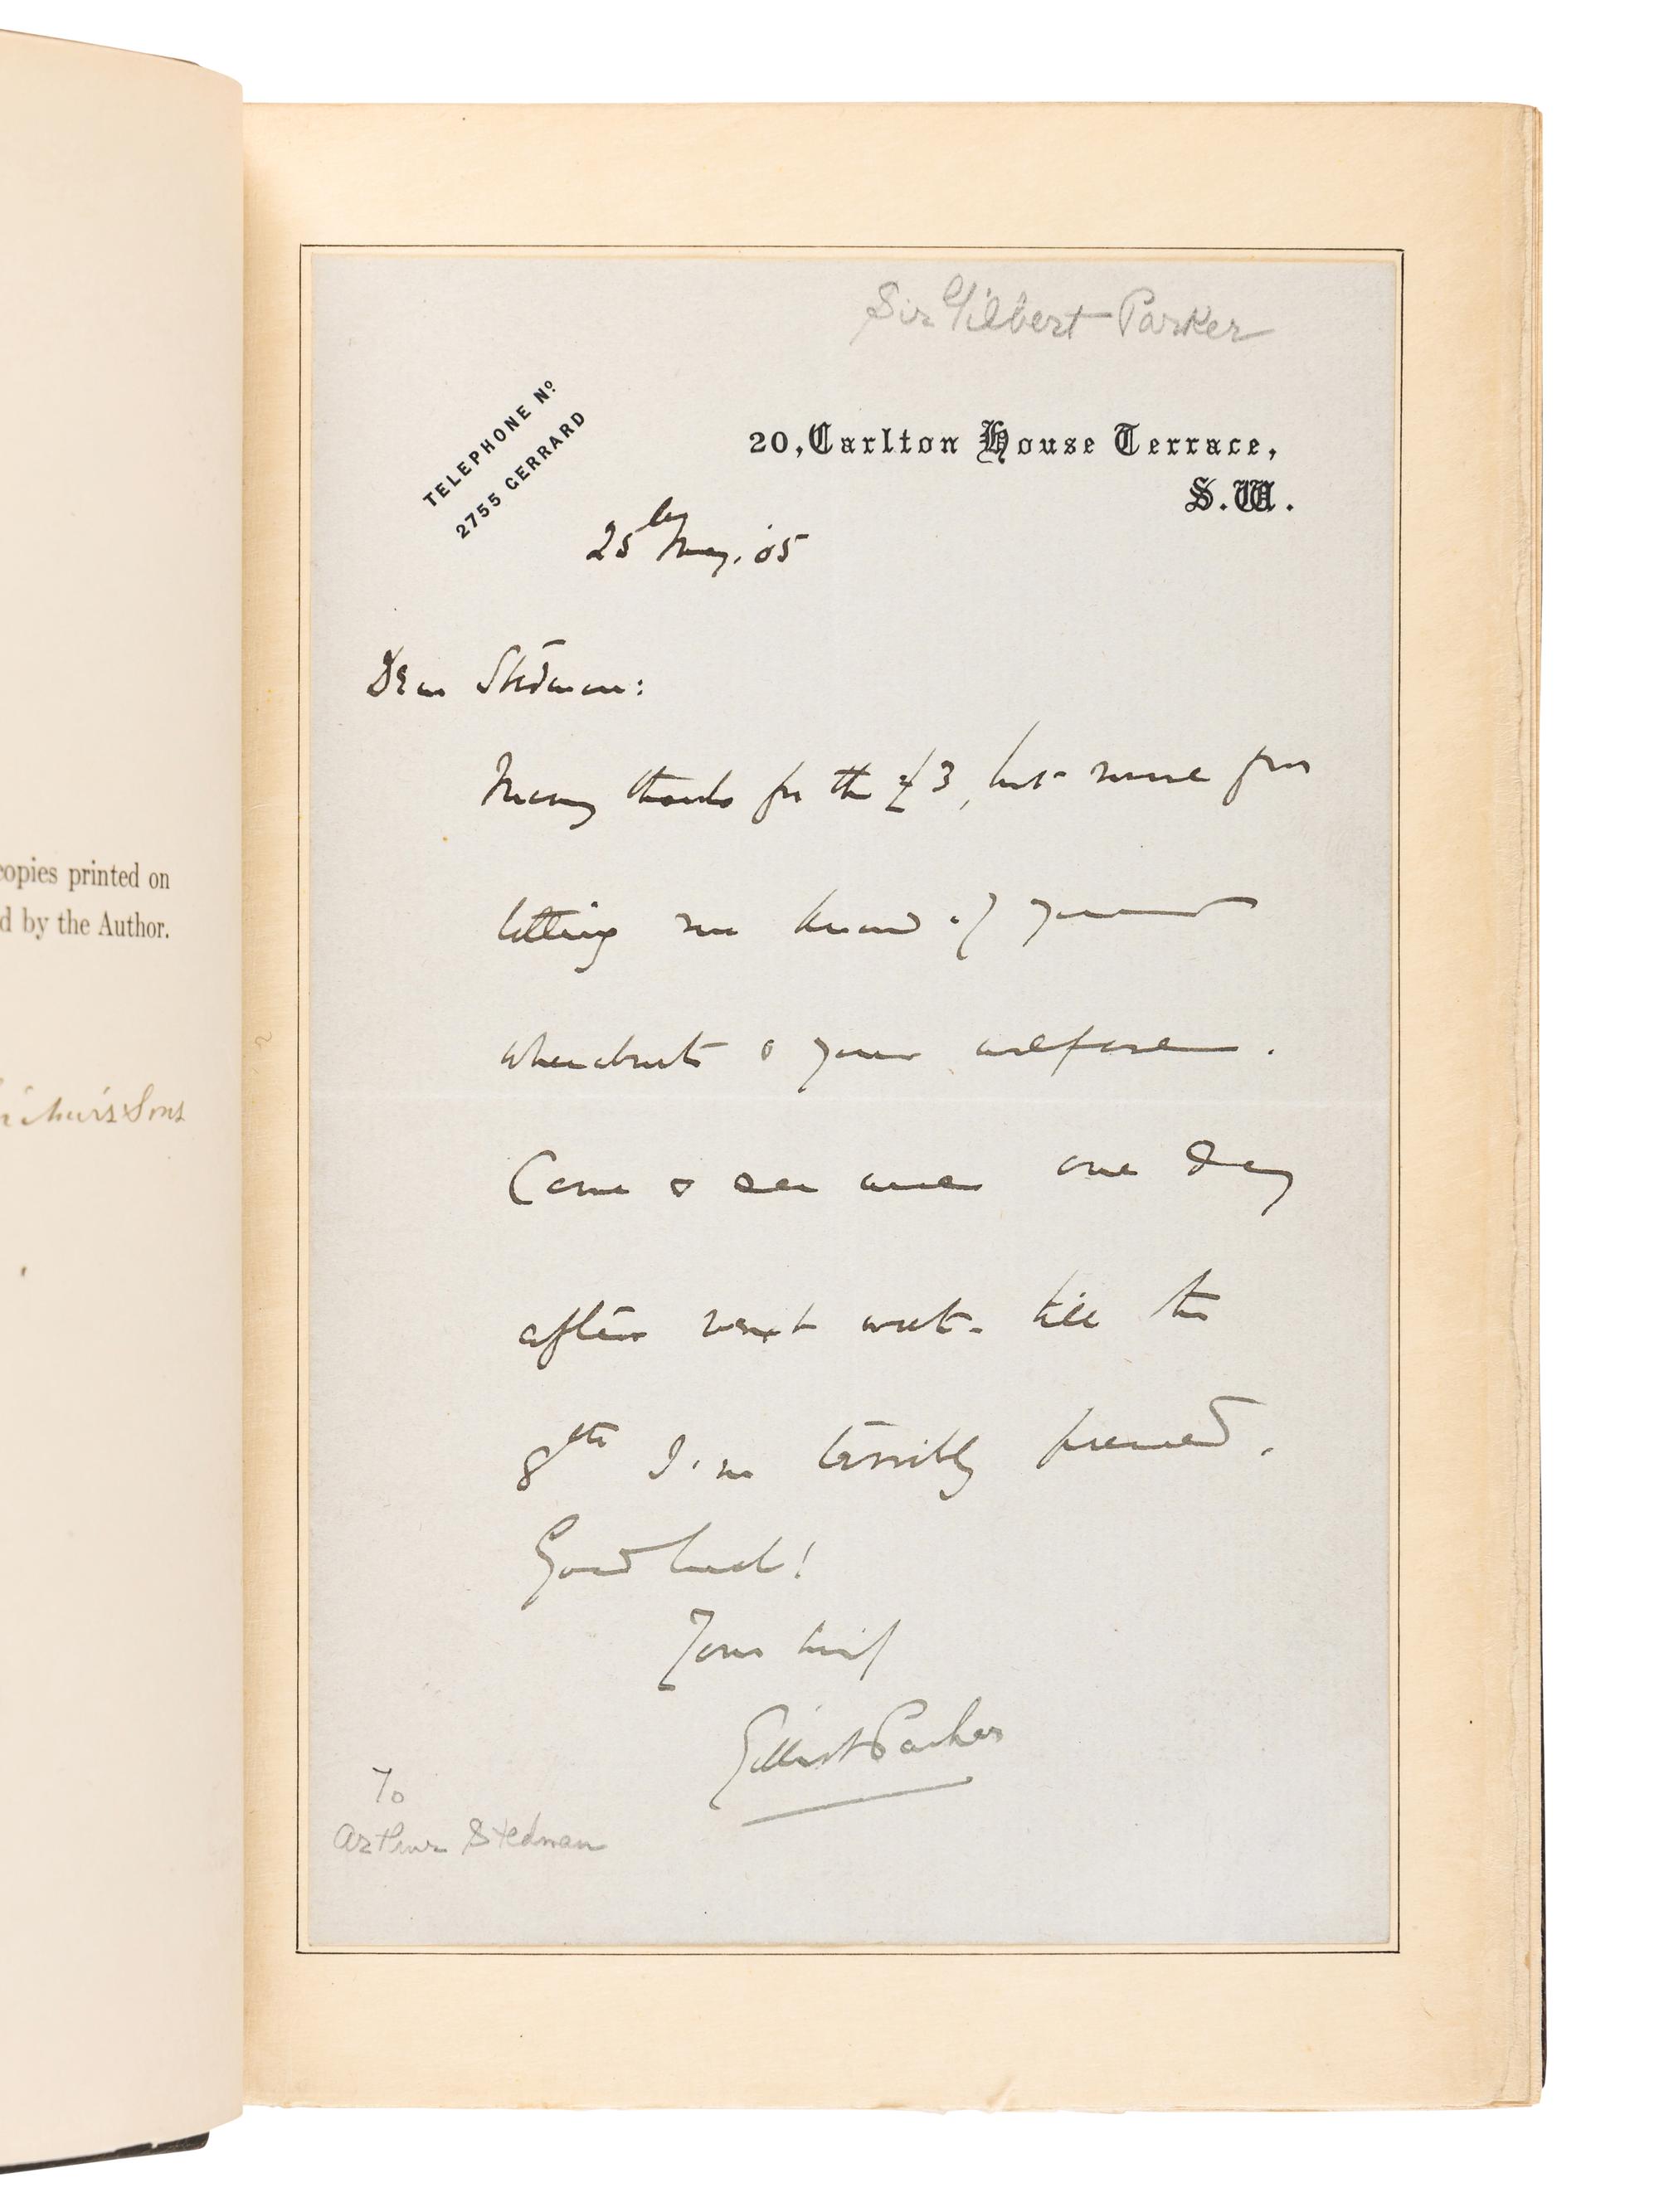 copies printed on
d by the Author.
Sir Gilbert Parker
TELEPHONE Nº
2755 GERRARD
20, Carlton House Terrace,
S.W.
25th May. '05
Dear Stedman:
Many thanks for the £3, but more for
letting me know of your
whereabouts & your welfare.
Come & see me one day
after next week. till the
8th I'm terribly pressed.
Good luck!
Yours
Gilbert Parker
To
Arthur Stedman